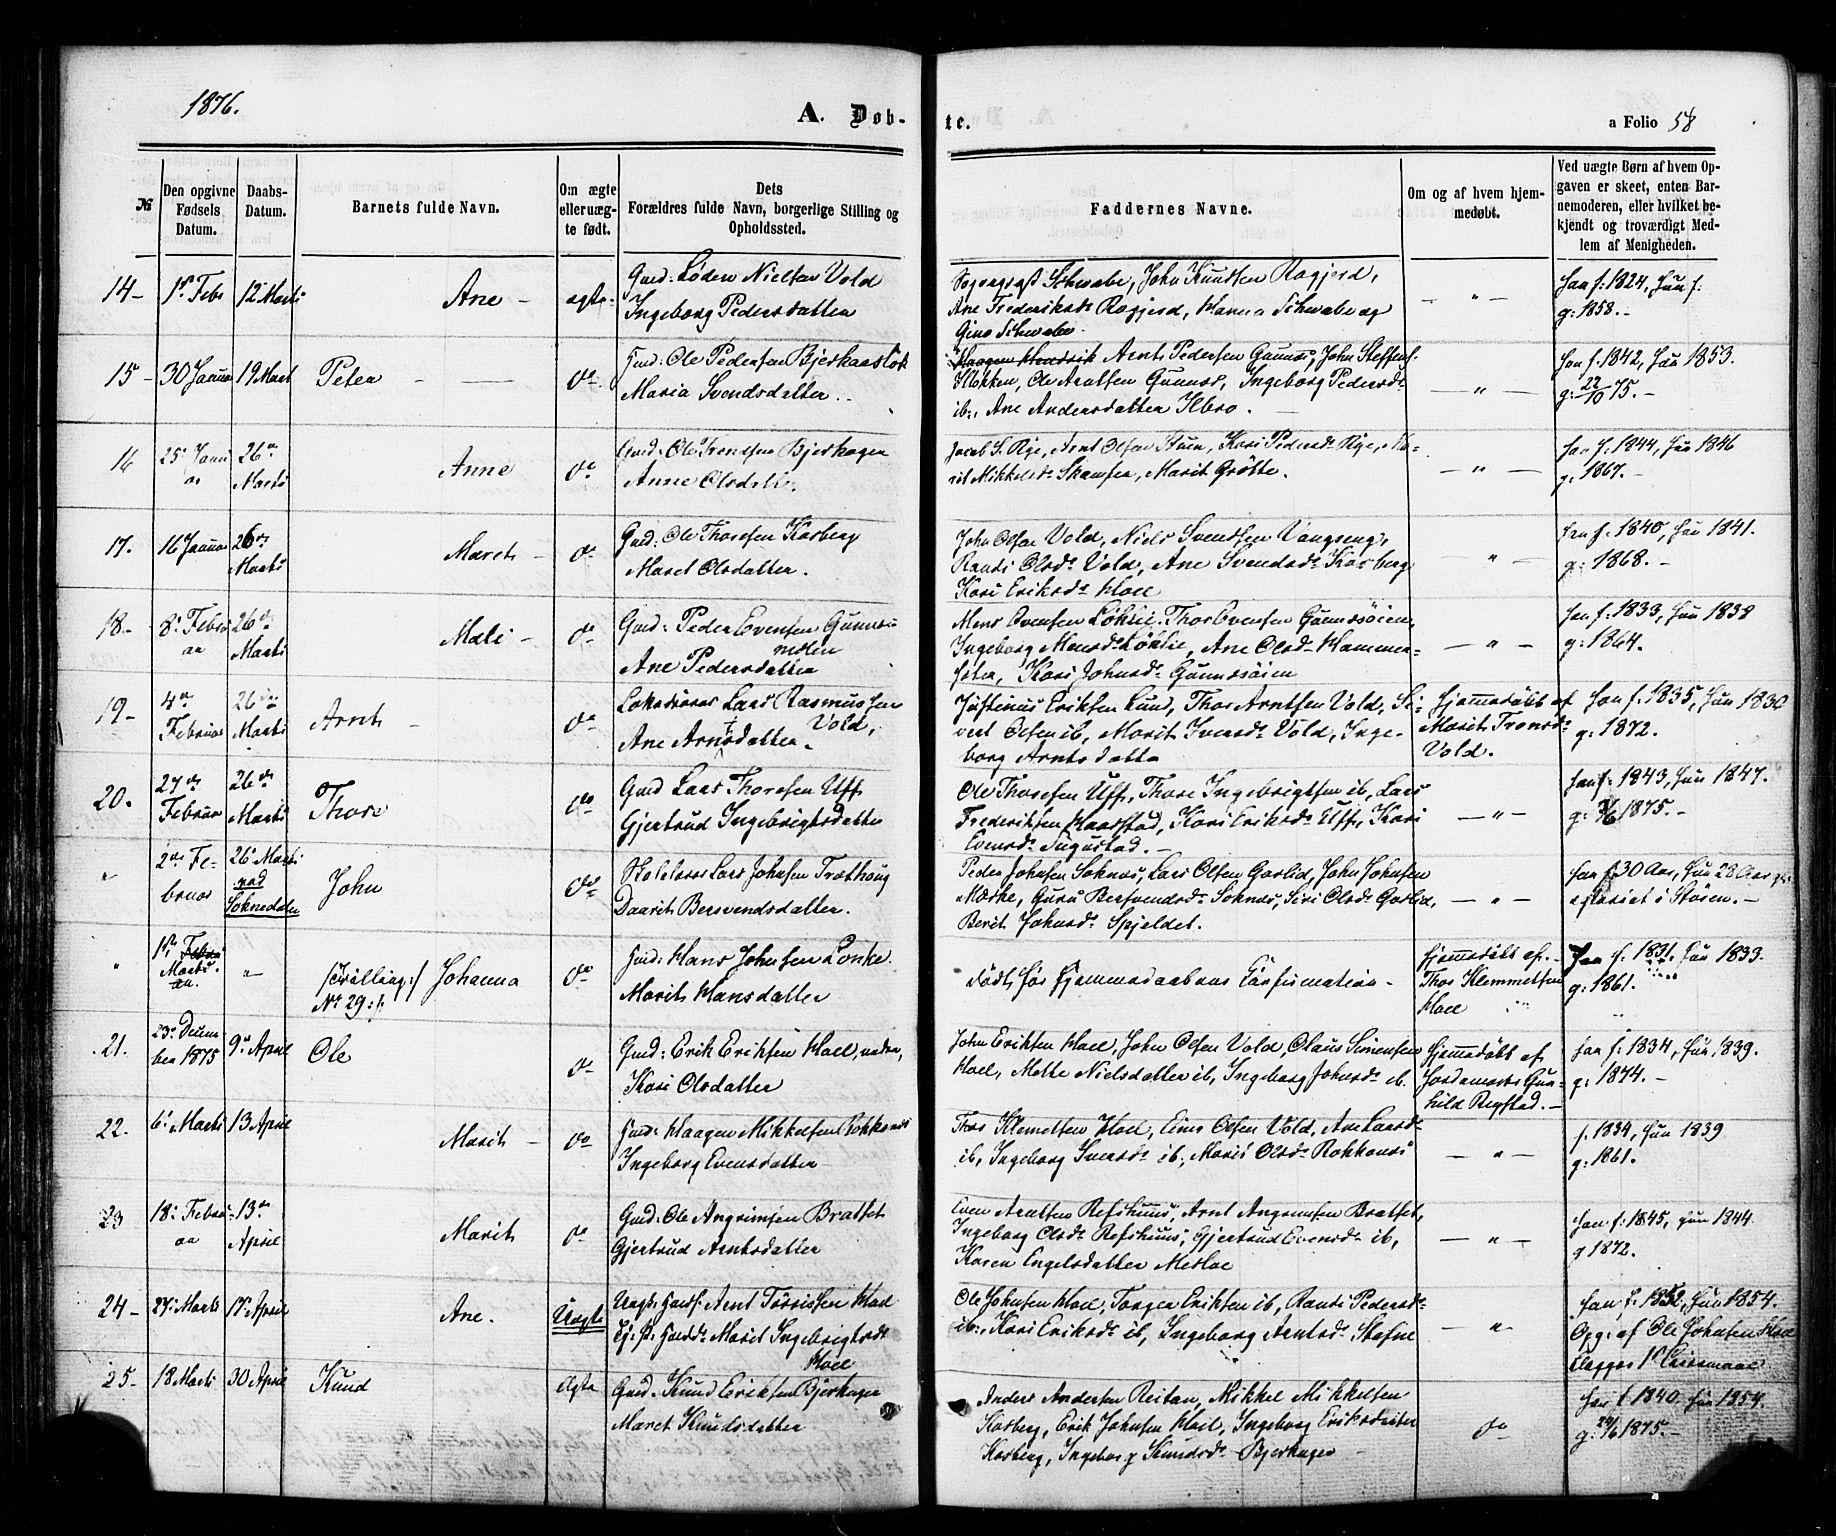 1876.
A. Døb-
te.
a Folio 58
№
Den opgivne
Fødsels
Datum.
Daabs-
Datum.
Barnets fulde Navn.
Om ægte
eller uæg-
te født.
Dets
Forældres fulde Navn, borgerlige Stilling og
Opholdssted.
Faddernes Navne.
Om og af hvem hjem-
medøbt.
Ved uægte Børn af hvem Op-
gaven er skeet, enten Bar-
nemoderen, eller hvilket be-
kjendt og troværdigt Med-
lem af Menigheden.
14-
12 Marts
Ane -
ægte-
Nielsen Vold
Ingeborg Pedersdatter
Schwabe, John Knudsen Rogjerd,
Ane Frederiksd. Rogjerd, Hanna Schwabe og
Gina Schwabe.
- " -
Han f: 1824, Hun f:
g: 1858.-
15-
30 Januar
19 Mart
Peter - -
do
Ole Pedersen
Maria Svendsdatter.
Arnt Pedersen Gunnes, John Steffens.
Klokken, Ole Arntsen Gunnes, Ingeborg Pedersd.
ib:, Ane Andersdatter
- " -
Han f. 1842, Hun 1853.
g: 22/10 75.-
16
25. Janu
ar
26de
Marts
Anne
do
Bjerhagen
Anne Olsdatter.
Jacob S. Rye, Arnt Olsen Kari Pedersd. Rye, Ma-
rit Mikkelsd. Skamfer, Marit Grøtte.
- " -
Han f. 1844, Hun 1846
g: 1867.-
17.
16 Januar
26de
Marts
Maret -
do
Gmd: Ole Thoresen Kosberg
Maret Olsdatter.
John Olsen Vold, Niels Svendsen Vangseng,
Randi Olsd. Vold, Ane Svendsd. Kosberg
Kari Eriksd. Hoel
"
Han f: 1840, Hun 1841.
g: 1868.-
18-
8. Febru
ar
26de
Marts
Mali -
do
Gmd: Peder Evensen Gunnes
Ane Pedersdatter
Mons Evensen Løhlie, Thor Evensen Gunnesøien,
Ingeborg Monsd. Løhlie, Ane Olsd. Hammer-
Kari Johnsd. Gunnesøien
- " -
Han f: 1833, Hun 1838
g: 1864.
19-
4de
Februar
26de
Marts
Arnt -
do
Lars Rasmussen
Vold,
Ane Arntsdatter.
Justinus Eriksen Lund, Thor Arntsen Vold, Si-
vert Olsen ib, Marit Iversd. Vold, Inge-
borg Arntsdatter
Hjemmedøbt af
Marit Tronsd.
Vold.
Han f: 1835, Hun 1830
g: 1872.
20.
27de
Februar
26de
Marts
Thore
do
Gmd Lars Thoresen Uff
Gjertrud Ingebrigtsdatter
Ole Thoresen Uff, Thore Ingebrigtsen ib, Lars
Frederiksen Haarstad, Kari Eriksd. Uff, Kari
Evensd.
- " -
Han f: 1843, Hun 1847.
g: 1875.-
"
2den Fe-
bruar
26. Marts
ved
Soknedalen
John
do
Lars Johnsen Træthoug
Daarit Bersvendsdatter.
Peder Johnsen Soknes, Lars Olsen Garlid, John Johnsen
Mærke, Guru Bersvendsd. Soknes, Siri Olsd. Garlid,
Berit Johnsd. Spjeldet.
- " -
Han f: 30 Aar, Hun 28 Aar
i Støren.-
"
Marts.
"
/:Tvilling:/
No 29:/
Johanna
do
Hans Johnsen Lonke
Marit Hansdatter
Død før Hjemmedaabens Confirmation -
Hjemmedøbt af.-
Thor Klemmetsen
Hoel
Han f. 1831. Hun 1833.
g: 1861.
21.
23. Decem
ber 1875
9. April
Ole
do
Gmd: Erik Eriksen Hoel, nedre,
Kari Olsdatter
John Eriksen Hoel, John Olsen Vold, Claus Simensen
Hoel, Mette Nielsdatter ib, Ingeborg Johnsd. ib.
Hjemmedøbt af
Jordemoder Gun-
hild Rygstad.-
Han f: 1834, Hun 1839.
g: 1874.-
22.
6. Marts
13 April
Marit -
do
Haagen Mikkelsen Rokkones
Ingeborg Evensdatter
Thor Klemetsen Hoel, Einer Olsen Vold, Ane Larsd.
ib, Ingeborg Iversd. ib, Marit Olsd. Rokkones
- " -
f. 1834, Hun 1839
g: 1861.
23
18. Febru-
ar
13de
April
Marit
do
Gmd: Ole Angrimsen Brattset
Gjertrud Arntsdatter
Even Arntsen Refshuus, Arnt Angrimsen Brattset,
Ingeborg Olsd. Refshuus, Gjertrud Evensd. ib,
Karen Engelsdatter Mesloe
- " -
Han f: 1845, Hun 1844
g 1872.
24-
27. Marts
17. April
Ane.
Uægte
Arnt Torrissen Hoel
Marit Ingebrigtsd.
Hoel
Ole Johnsen Hoel, Torger Eriksen ib, Randi Pedersd.
ib:, Kari Eriksd. ib, Ingeborg Arntsd. Stafne
- " -
Han f: 1852, Hun 1854.
Opg: af Ole Johnsen Hoel
25-
18 Marts
30 April
Knud
Ægte
Gmd. Knud Eriksen Bjerhagen
Maret Knudsdatter
Anders Andersen Reitan, Mikkel Mikkelsen
Kosberg, Erik Johnsen Hoel, Ingeborg Eriksdatter
Kosberg, Ingeborg Knudsd. Bjerhagen -
do
Han f. 1840, Hun 1854.
g: 1875.-